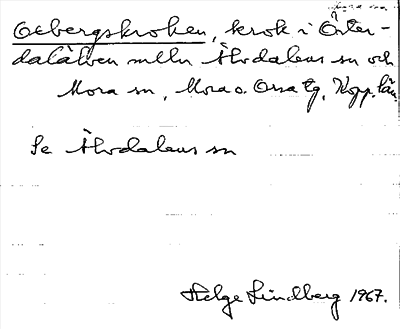 Gebergskroken, krok i Öster-
dalälven mlln Älvdalens sn och
Mora sn, Mora o. Orsa tg, Kopp. län.
Se Älvdalens sn
Helge Lindberg 1967.